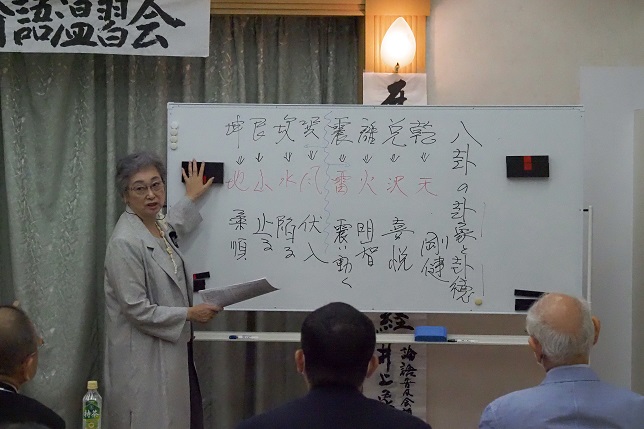 論語温習会
八卦の卦象と卦徳
乾 ↓ 天 剛健
兌 ↓ 沢 喜悦
離 ↓ 火 明智
震 ↓ 雷 震い動く
巽 ↓ 風 伏入
坎 ↓ 水 陥る
艮 ↓ 山 止る
坤 ↓ 地 柔順
経 井上
論語普及会
特茶